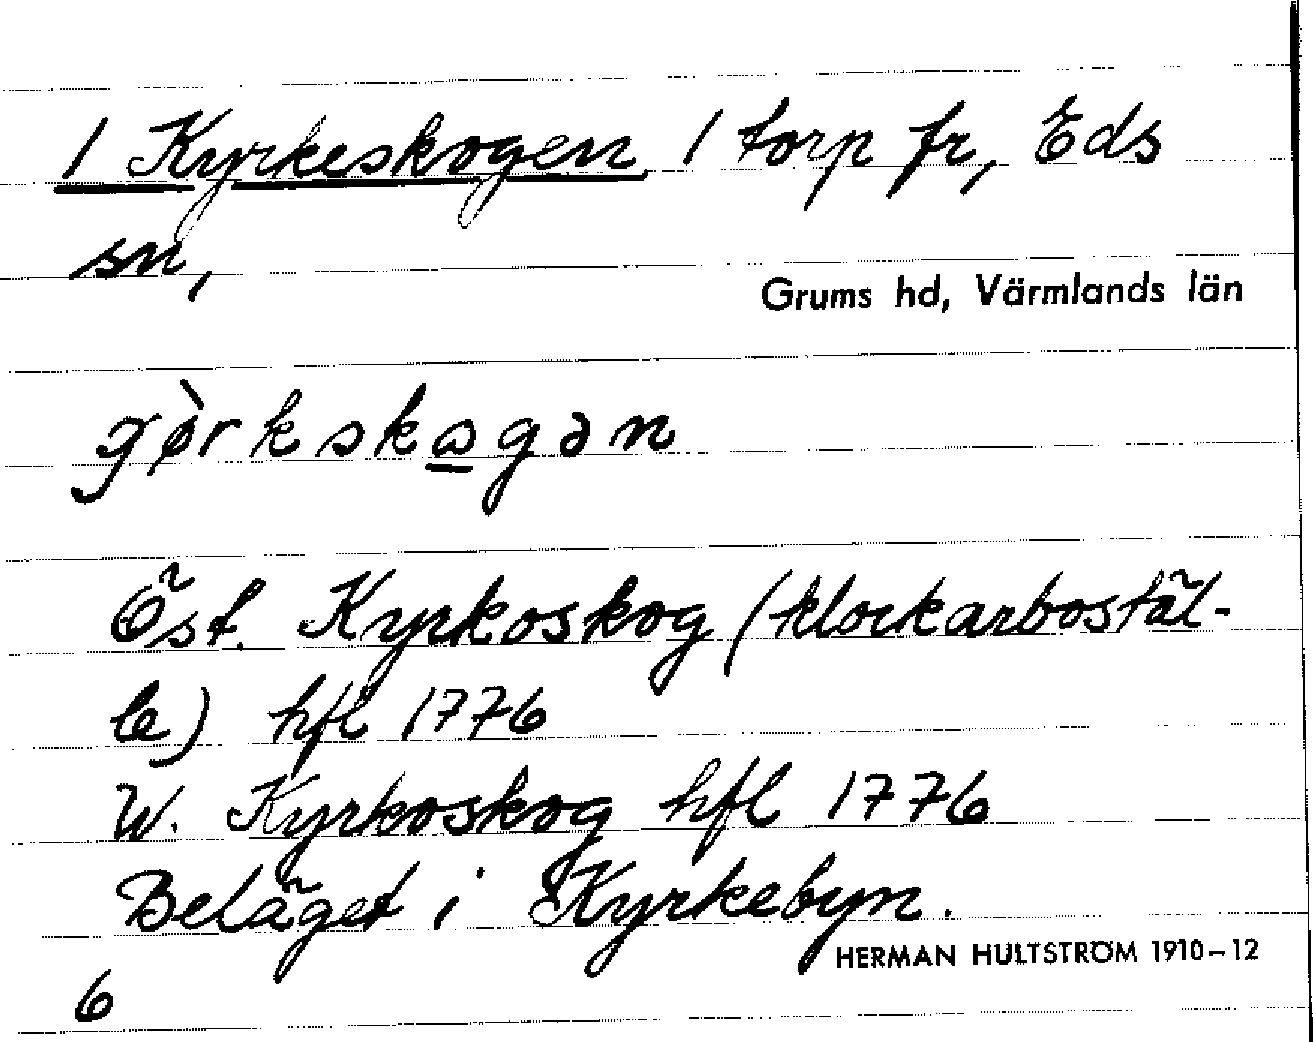 / Kyrkeskogen / torp fr, Eds
sn,
Grums hd, Värmlands län
gø̀rkskωgən
Öst. Kyrkoskog (klockarbostäl-
le) hfl 1776
W. Kyrkoskog hfl 1776
Beläget i Kyrkebyn.
HERMAN HULTSTRÖM 1910–12
6